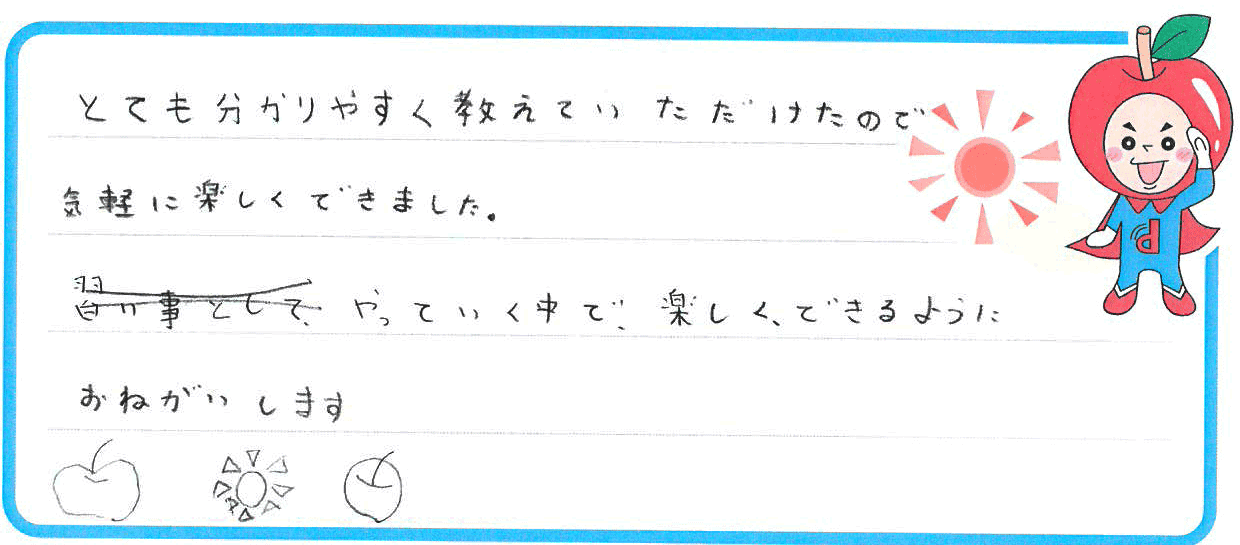 とても分かりやすく教えていただけたので
気軽に楽しくできました。
習い事として、やっていく中で、楽しく、できるように
おねがいします